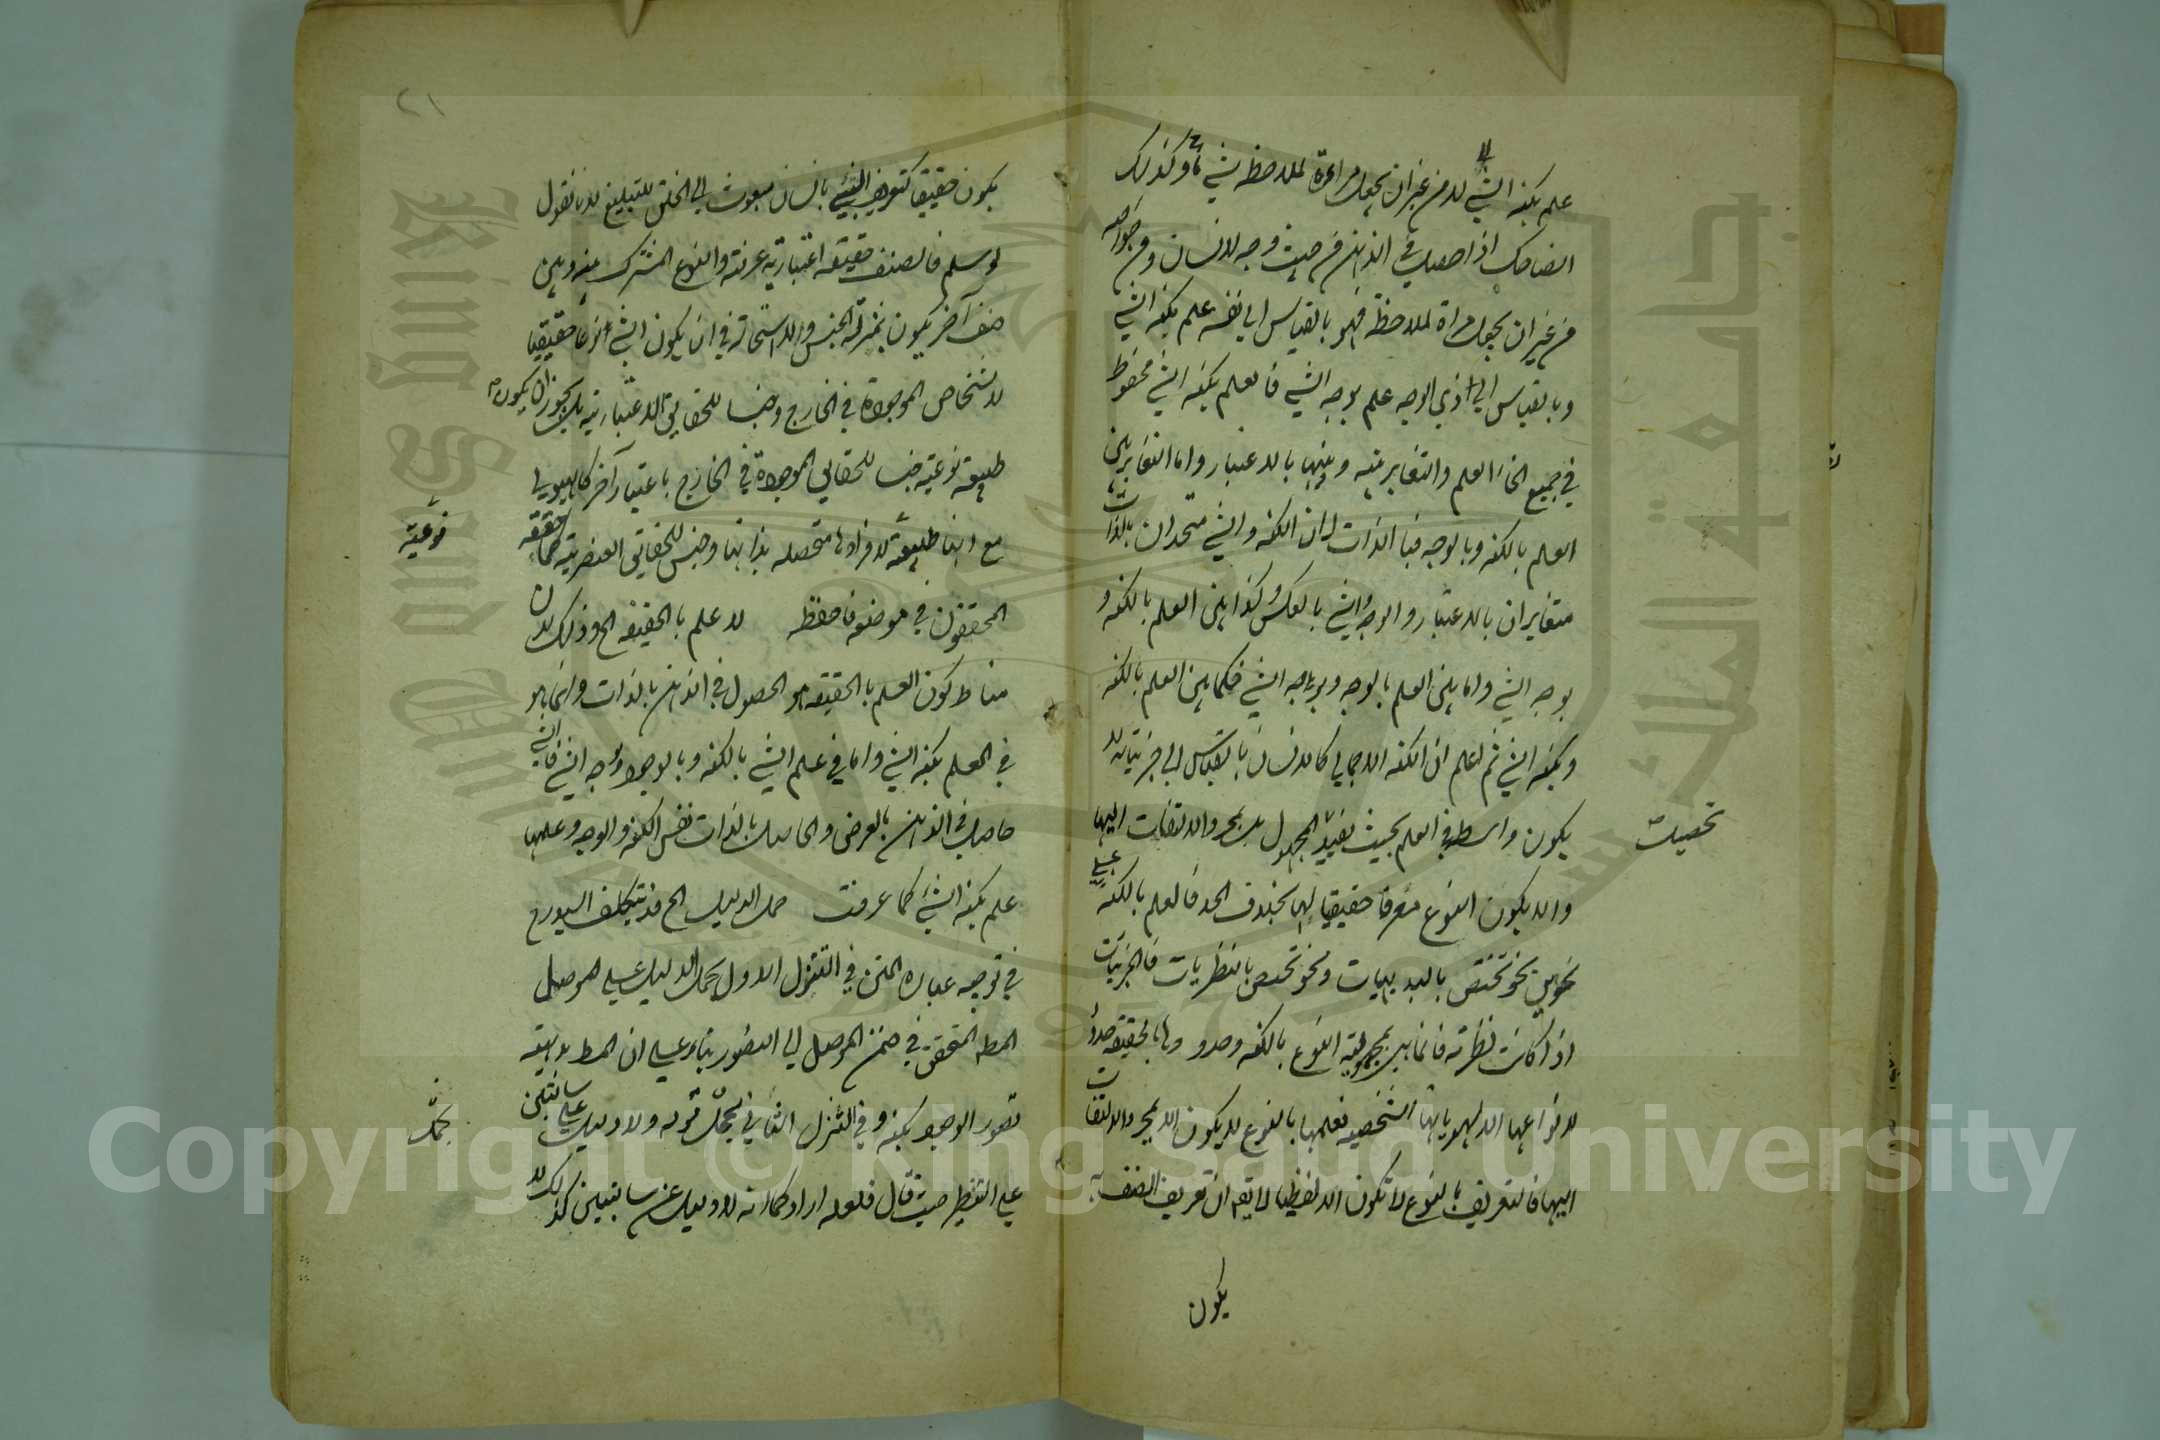 علم بكنه الشي لا من غير ان يجعل مراءة لملاحظة شي ما وكذلك
الضاحك اذا حصل في الذهن من حيث وجه للانسان ومن خواصه
من غير ان يجعل مراة لملاحظة فهو بالقياس الى نفسه علم بكنه الشي
وبالقياس الى ذي الوجه علم بوجه الشي فالعلم بكنه الشي محفوظ
في جميع انحاء العلم والتغاير بينه وبينها بالاعتبار واما التغاير بين
العلم بالكنه وبالوجه فبالذات لان الكنه والشي متحدان بالذات
متغايران بالاعتبار والوجه والشي بالعكس وكذا بين العلم بالكنه و
بوجه الشي واما بين العلم بالوجه وبوجه الشي فكما بين العلم بالكنه
وبكنه الشي ثم اعلم ان الكنه الاجمالي كالانسان بالقياس الى جزئياته لا
يكون واسطة في العلم بحيث يفيد المجهول بل بمجرد الالتفات اليها
تحصيل
والا يكون النوع معرفا حقيقيا لها بخلاف الحد فالعلم بالكنه على
نحوين نحو تختص بالبديهيات ونحو تختص بالنظريات فالجزئيات
اذا كانت نظرية فانما هي بمجهولية النوع بالكنه وحدو وها بالحقيقة حدود
لانواعها لا لهوياتها الشخصية فعلمها بالنوع لا يكون الا بمجرد الالتفات
اليها فالتعريف بالنوع لا تكون الا لفظيا لا يقم ان تعريف الصنف به
يكون
٢١
يكون حقيقيا كتعريف النبي بانسان مبعوث الى الخلق للتبليغ لانا نقول
لو سلم فالصنف حقيقة اعتبارية عرفية والنوع المشترك بينه وبين
صنف آخر يكون بمنزلة الجنس ولا استحالة في ان يكون الشي نوعا حقيقيا
لاشخاص الموجودة في الخارج وجنسا للحقايق الاعتبارية بل يجوز ان يكون
طبيعة نوعية جنسا للحقايق الموجودة في الخارج باعتبار آخر كالهيولى
مع انها طبيعة لافرادها متحصله بذاتها وجنس للحقائق العنصرية كما حققه
نوعية
المحققون في موضعه فاحفظه لا علم بالحقيقة الخ وذلك لان
مناط كون العلم بالحقيقة هو الحصول في الذهن بالذات وانما هو
في العلم بكنه الشي واما في علم الشي بالكنه وبالوجه وبوجه الشي فالشي
حاصل في الذهن بالعرض والحاصل بالذات نفس الكنه والوجه وعلمها
علم بكنه الشي كما عرفت حمل الدليل الخ قد تكلف السيورع
في توجيه عبارة المتن في التنزل الاول بحمل الدليل على الموصل
المط المتحقق في ضمن الموصل الى التصور بناء على ان المط بديهية
تصور الوجود بكنه وفي التنزل الثاني بحمل قوله ولا دليل على سالبتين
بحمل
على التنظير حيث قال فلعله اراد كما انه لا دليل عن سالبتين كذلك لا